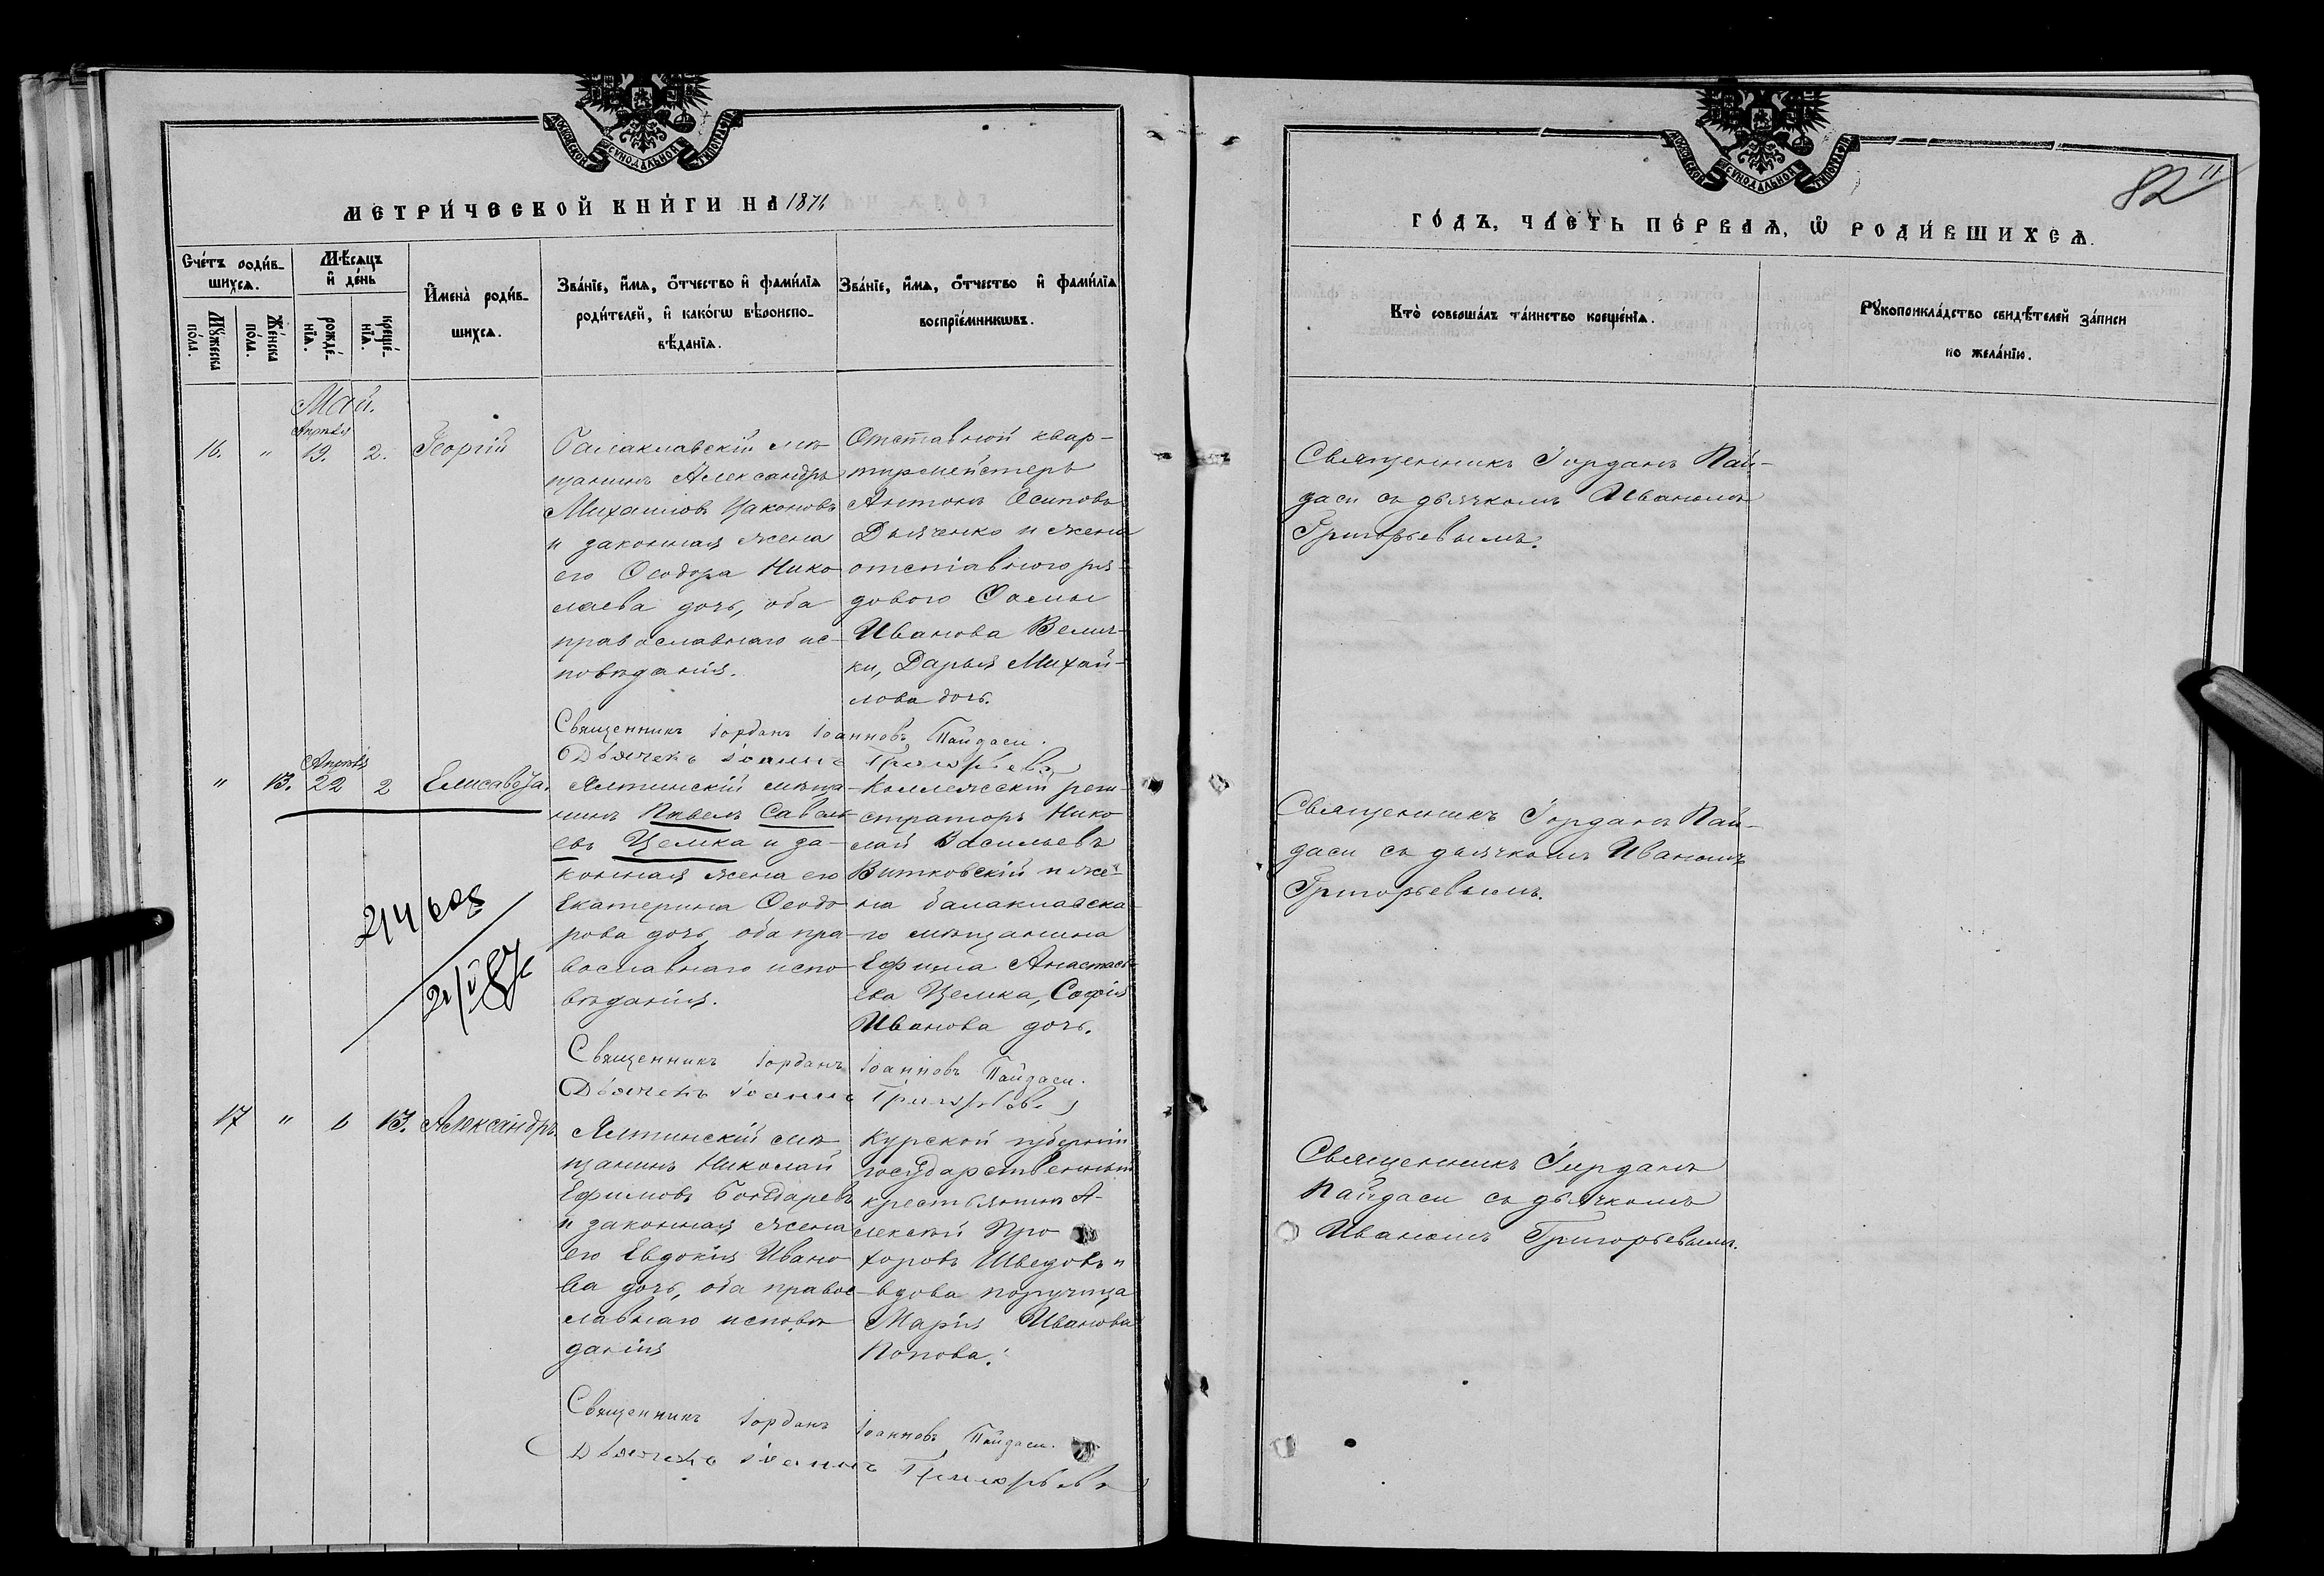 МОСКОВСКОЙ СѴНОДАЛЬНОЙ ТИПОГРАФІИ
МЕТРИ́ЧЕСКОЙ КНИ́ГИ НА 1871
Сче́тъ роди́в-
шихсѧ.
Мꙋ́жеска
по́ла.
Же́нска
по́ла.
Мѣ́сѧцъ
и҆ де́нь
рожде́-
нїѧ.
креще́-
нїѧ.
И҆мена̀ роди́в-
шихсѧ.
Зва́нїе, и҆́мѧ, ѻ҆́тчество и҆ фами́лїѧ
роди́телей, и҆ како́гѡ вѣроиспо-
вѣ́данїѧ.
Зва́нїе, и҆́мѧ, ѻ҆́тчество и҆ фами́лїѧ
воспрїе́мникѡвъ.
Май.
Апрѣля
16. " 19. 2. Георгій
Балаклавскій мѣ-
щанинъ Александръ
Михаиловъ Цаконовъ
и законная жена
его Ѳеодора Нико-
лаева дочь, оба
православнаго ис-
повѣданія.
Отставной квар-
тирмейстеръ
Антонъ Осиповъ
Дьяченко и жена
отставного ря-
дового Ѳомы
Иванова Велич-
ки, Дарья Михай-
лова дочь.
Священникъ Іорданъ Іоанновъ Пайдаси.
Дьячекъ Іоаннъ Григорьевъ
Апрѣля
" 13. 22 2 Елисавета.
Ялтинскій мѣща-
нинъ Павелъ Савель-
евъ Целика и за-
конная жена его
Екатерина Ѳеодо-
рова дочь, оба пра-
вославнаго испо-
вѣданія.
Коллежскій реги-
страторъ Нико-
лай Васильевъ
Витковскій и же-
на балаклавска-
го мѣщанина
Ефима Анастась-
ева Целика, Софія
Иванова дочь.
Священникъ Іорданъ Іоанновъ Пайдаси.
Дьячекъ Іоаннъ Григорьевъ
17 " 6 13. Александръ
Ялтинскій мѣ-
щанинъ Николай
Ефимовъ Бондаревъ
и законная жена
его Евдокія Ивано-
ва дочь, оба правос-
лавнаго исповѣ-
данія
Курской губерніи
государственный
крестьянинъ А-
лексѣй Про-
хоровъ Шведовъ и
вдова поручица
Марія Иванова
Попова.
Священникъ Іорданъ Іоанновъ Пайдаси.
Дьячекъ Іоаннъ Григорьевъ
МОСКОВСКОЙ СѴНОДАЛЬНОЙ ТИПОГРАФІИ
82
11
ГО́ДЪ, ЧА́СТЬ ПЕ́РВАѦ, Ѡ҆ РОДИ́ВШИХСѦ.
Кто̀ соверша́лъ та́инство креще́нїѧ.
Рꙋкоприкла́дство свидѣ́телей за́писи
по жела́нїю.
Священникъ Іорданъ Пай-
даси съ дьячкомъ Иваномъ
Григорьевымъ.
Священникъ Іорданъ Пай-
даси съ дьячкомъ Иваномъ
Григорьевымъ.
Священникъ Іорданъ
Пайдаси съ дьячкомъ
Иваномъ Григорьевымъ.